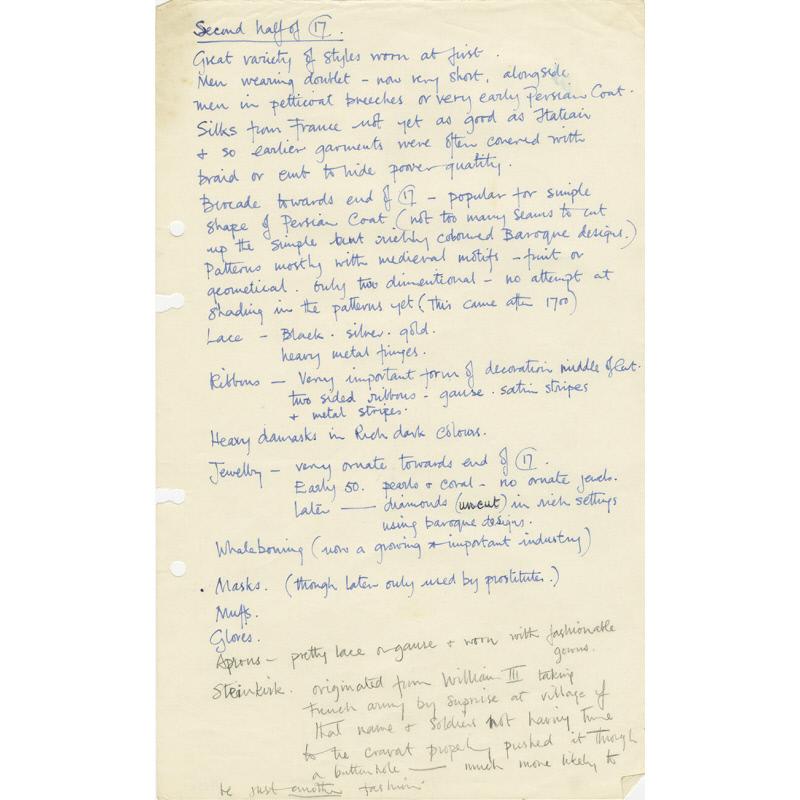 Second half of 17.
Great variety of styles worn at first.
Men wearing doublet - now very short, alongside
men in petticoat breeches or very early Persian Coat.
Silks from France not yet as good as Italian
+ so earlier garments were often covered with
braid or emb to hide poorer quality.
Brocade towards end of 17 - popular for simple
shape of Persian Coat (not too many seams to cut
up the simple but richly coloured Baroque designs.)
Patterns mostly with medieval motifs - fruit or
geometical. Only two dimentional - no attempt at
shading in the patterns yet (This came after 1700)
Lace - Black. silver. gold.
heavy metal fringes.
Ribbons - Very important form of decoration middle of Cent.
two sided ribbons - gause. satin stripes
+ metal stripes.
Heavy damasks in Rich dark colours.
Jewelry - very ornate towards end of 17.
Early 50. pearls + coral - no ornate jewels.
Later - diamonds (uncut) in rich settings
using baroque designs.
Whaleboning (now a growing + important industry)
. Masks. (though later only used by prostitutes.)
Muffs.
Gloves.
Aprons - pretty lace or gause + worn with fashionable
gowns.
Steinkirk. originated from William III taking
French army by Suprise at village of
that name + Soldiers not having time
to tie cravat properly pushed it through
a buttonhole - much more likely to
be just another fashion.